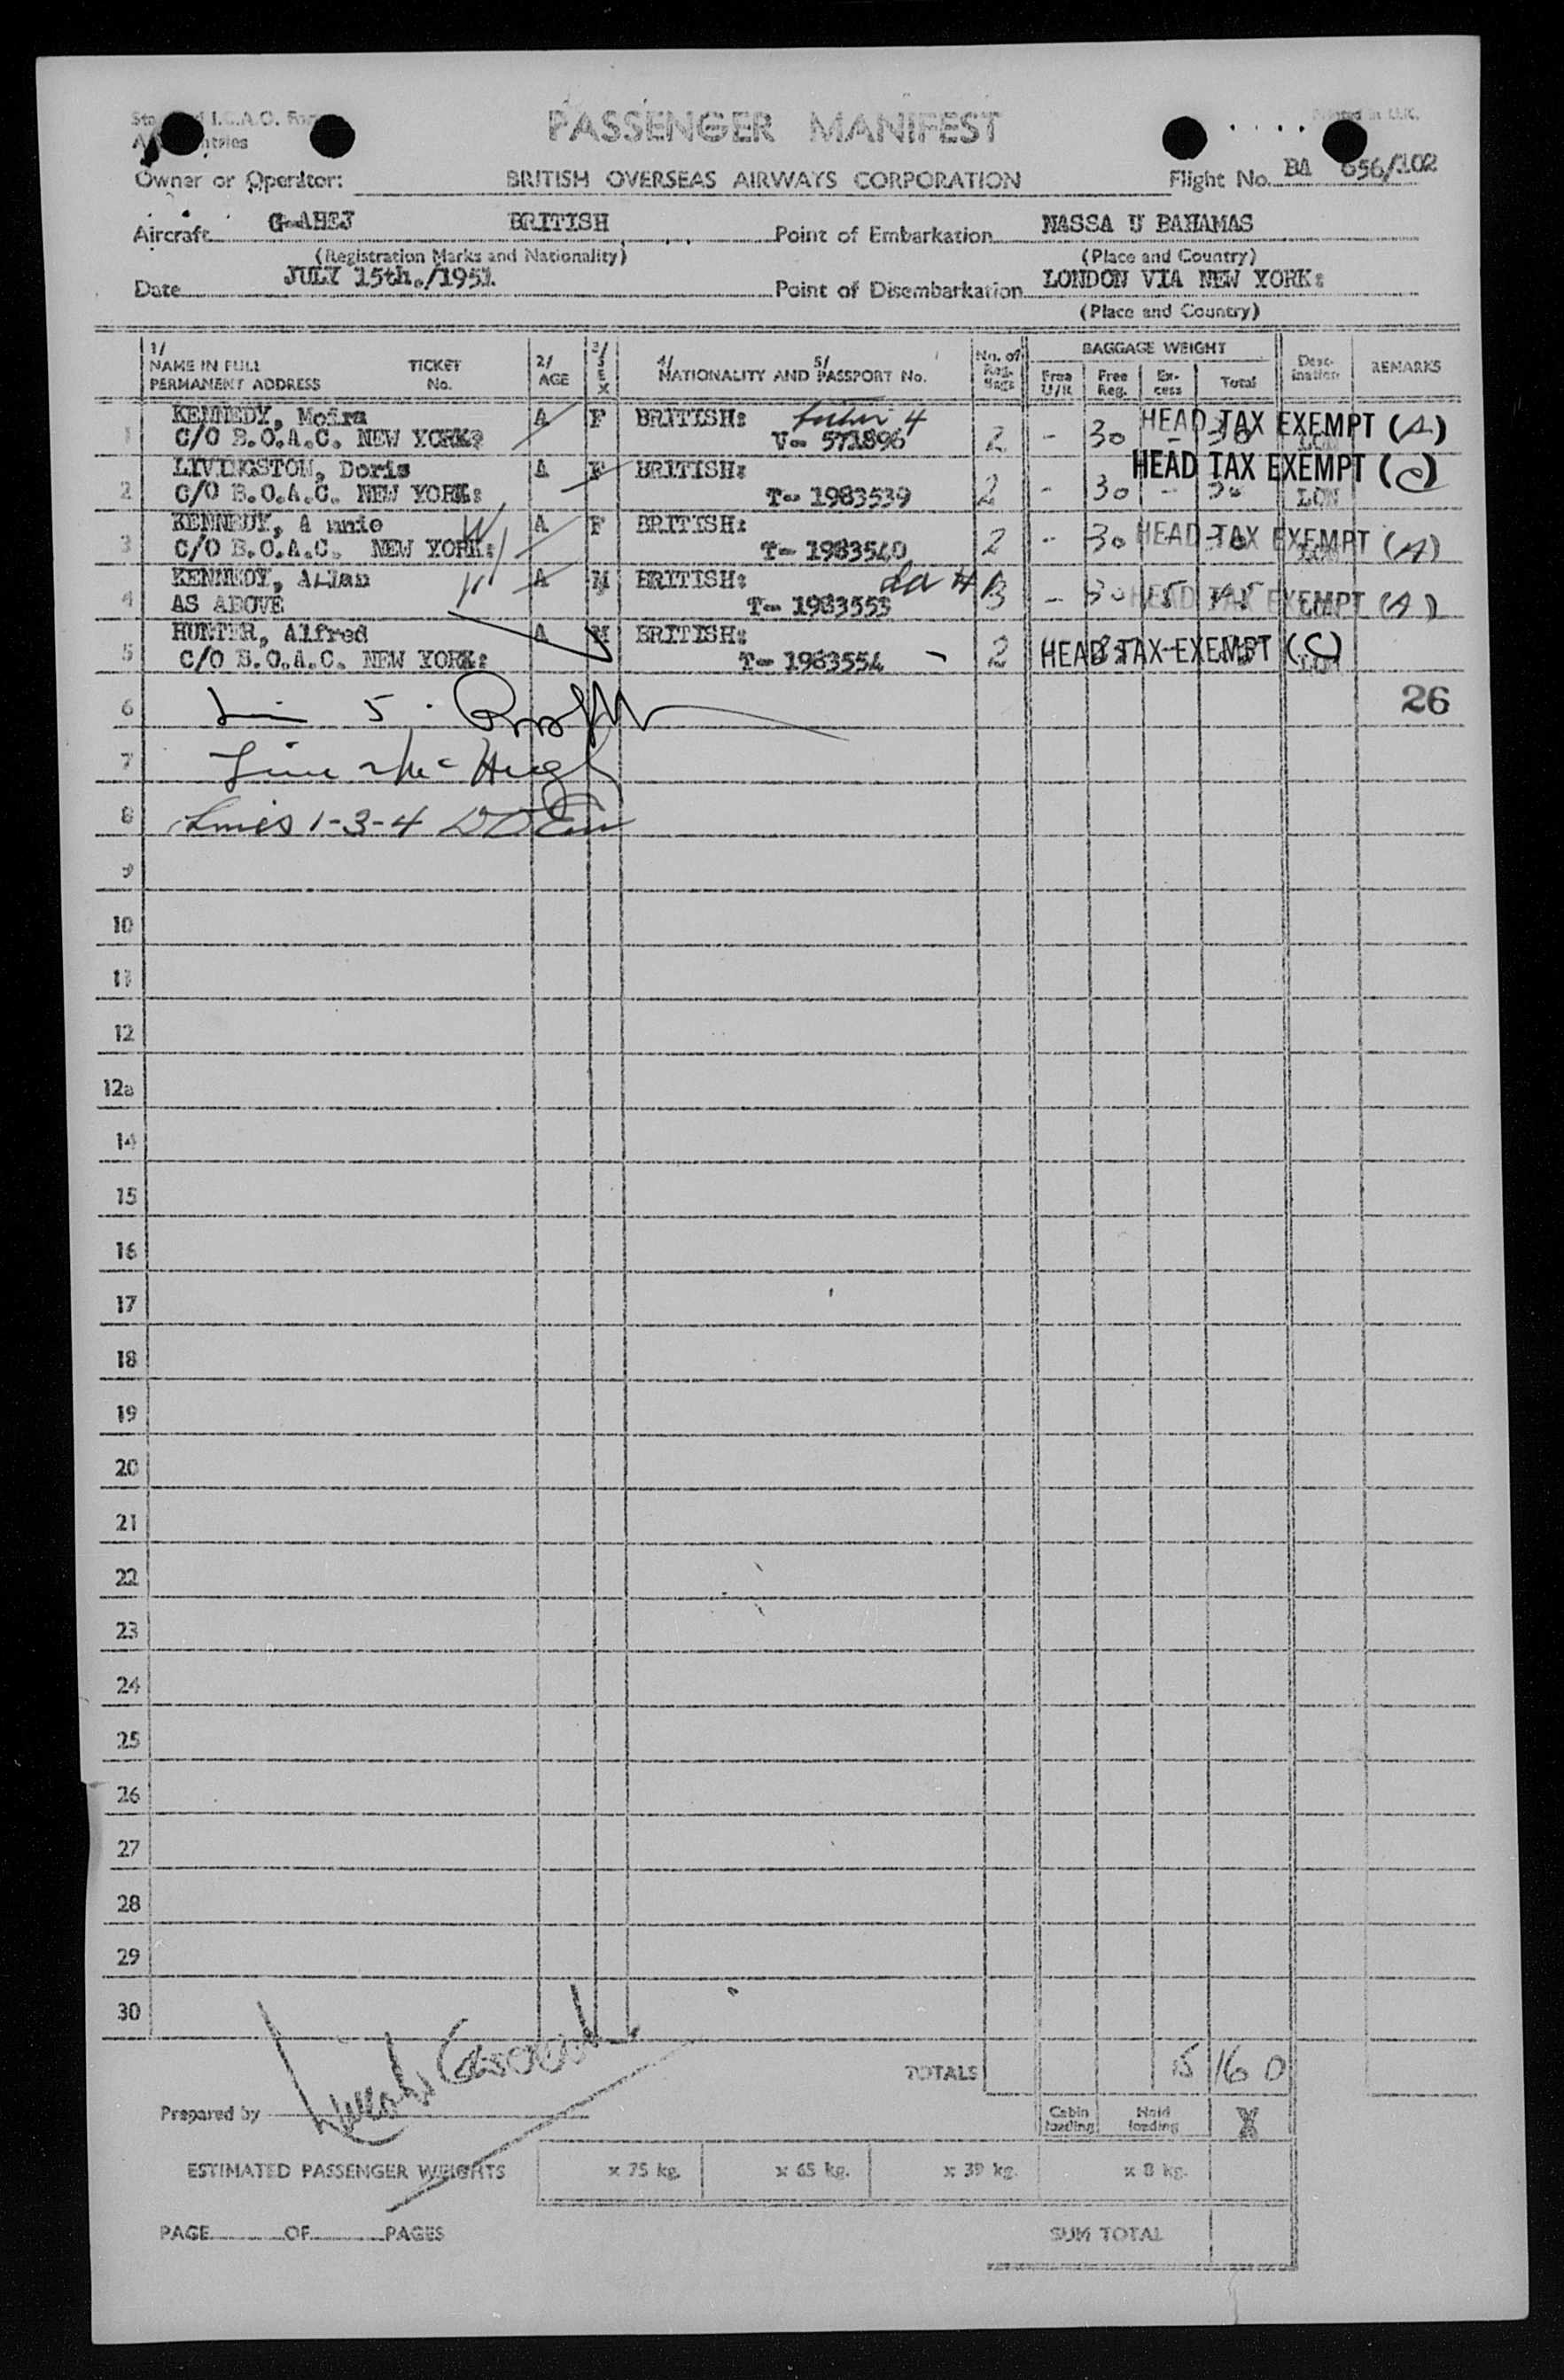 PASSENGER MANIFEST
Printed in U.K.
Owner or Operator: BRITISH OVERSEAS AIRWAYS CORPORATION Flight No. BA 656/102
Aircraft G-AHEJ BRITISH Point of Embarkation NASSA U BAHAMAS
(Registration Marks and Nationality) (Place and Country)
Date JULY 15th./1951. Point of Disembarkation LONDON VIA NEW YORK:
(Place and Country)
1/ NAME IN FULL PERMANENT ADDRESS TICKET No. 2/ AGE 3/ SEX 4/ NATIONALITY AND 5/ PASSPORT No. No. of Reg. Bags BAGGAGE WEIGHT Free U/R Free Reg. Ex-cess Total Dest-ination REMARKS
1 KENNEDY, Moira A F BRITISH: HEAD TAX EXEMPT (A)
C/O B.O.A.C. NEW YORK: V- 571896 2 - 30 - 30 LON
2 LIVINGSTON, Doris A F BRITISH: HEAD TAX EXEMPT (C)
C/O B.O.A.C. NEW YORK: T- 1983539 2 - 30 - 30 LON
3 KENNEDY, A nnie A F BRITISH: HEAD TAX EXEMPT (A)
C/O B.O.A.C. NEW YORK: T- 1983540 2 - 30 LON
4 KENNEDY, Allan A M BRITISH: HEAD TAX EXEMPT (A)
AS ABOVE T- 1983553 3 - 30 15 45 LON
5 HUNTER, Alfred A M BRITISH: HEAD TAX EXEMPT (C)
C/O B.O.A.C. NEW YORK: T- 1983554 - 2 LON
6 26
7 Line 2 McHugh
8 Lines 1-3-4
9
10
11
12
12a
14
15
16
17
18
19
20
21
22
23
24
25
26
27
28
29
30
TOTALS 15 160
Prepared by
Cabin loading Hold loading
ESTIMATED PASSENGER WEIGHTS x 75 kg. x 65 kg. x 39 kg. x 8 kg.
PAGE OF PAGES SUM TOTAL